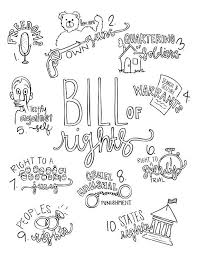 1
FREEDOMS
2
own guns
3
QUARTERING
soldiers
4
WARRANTS
5
testify
against
self
BILL
OF
rights
6
RIGHT TO
speedy
TRIAL
7
RIGHT TO A
jury
8
CRUEL
unusual
PUNISHMENT
9
PEOPLES
rights
10
STATES
rights